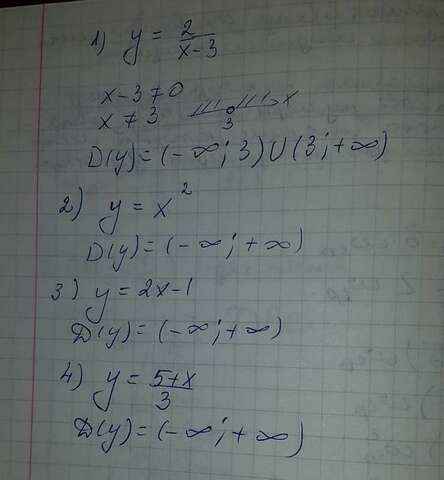 1) y = 2/(x-3)
x-3≠0
x≠3
3 x
D(y)=(-∞; 3)U(3;+∞)
2) y = x²
D(y)=(-∞;+∞)
3) y=2x-1
D(y)=(-∞;+∞)
4) y = (5+x)/3
D(y)=(-∞;+∞)